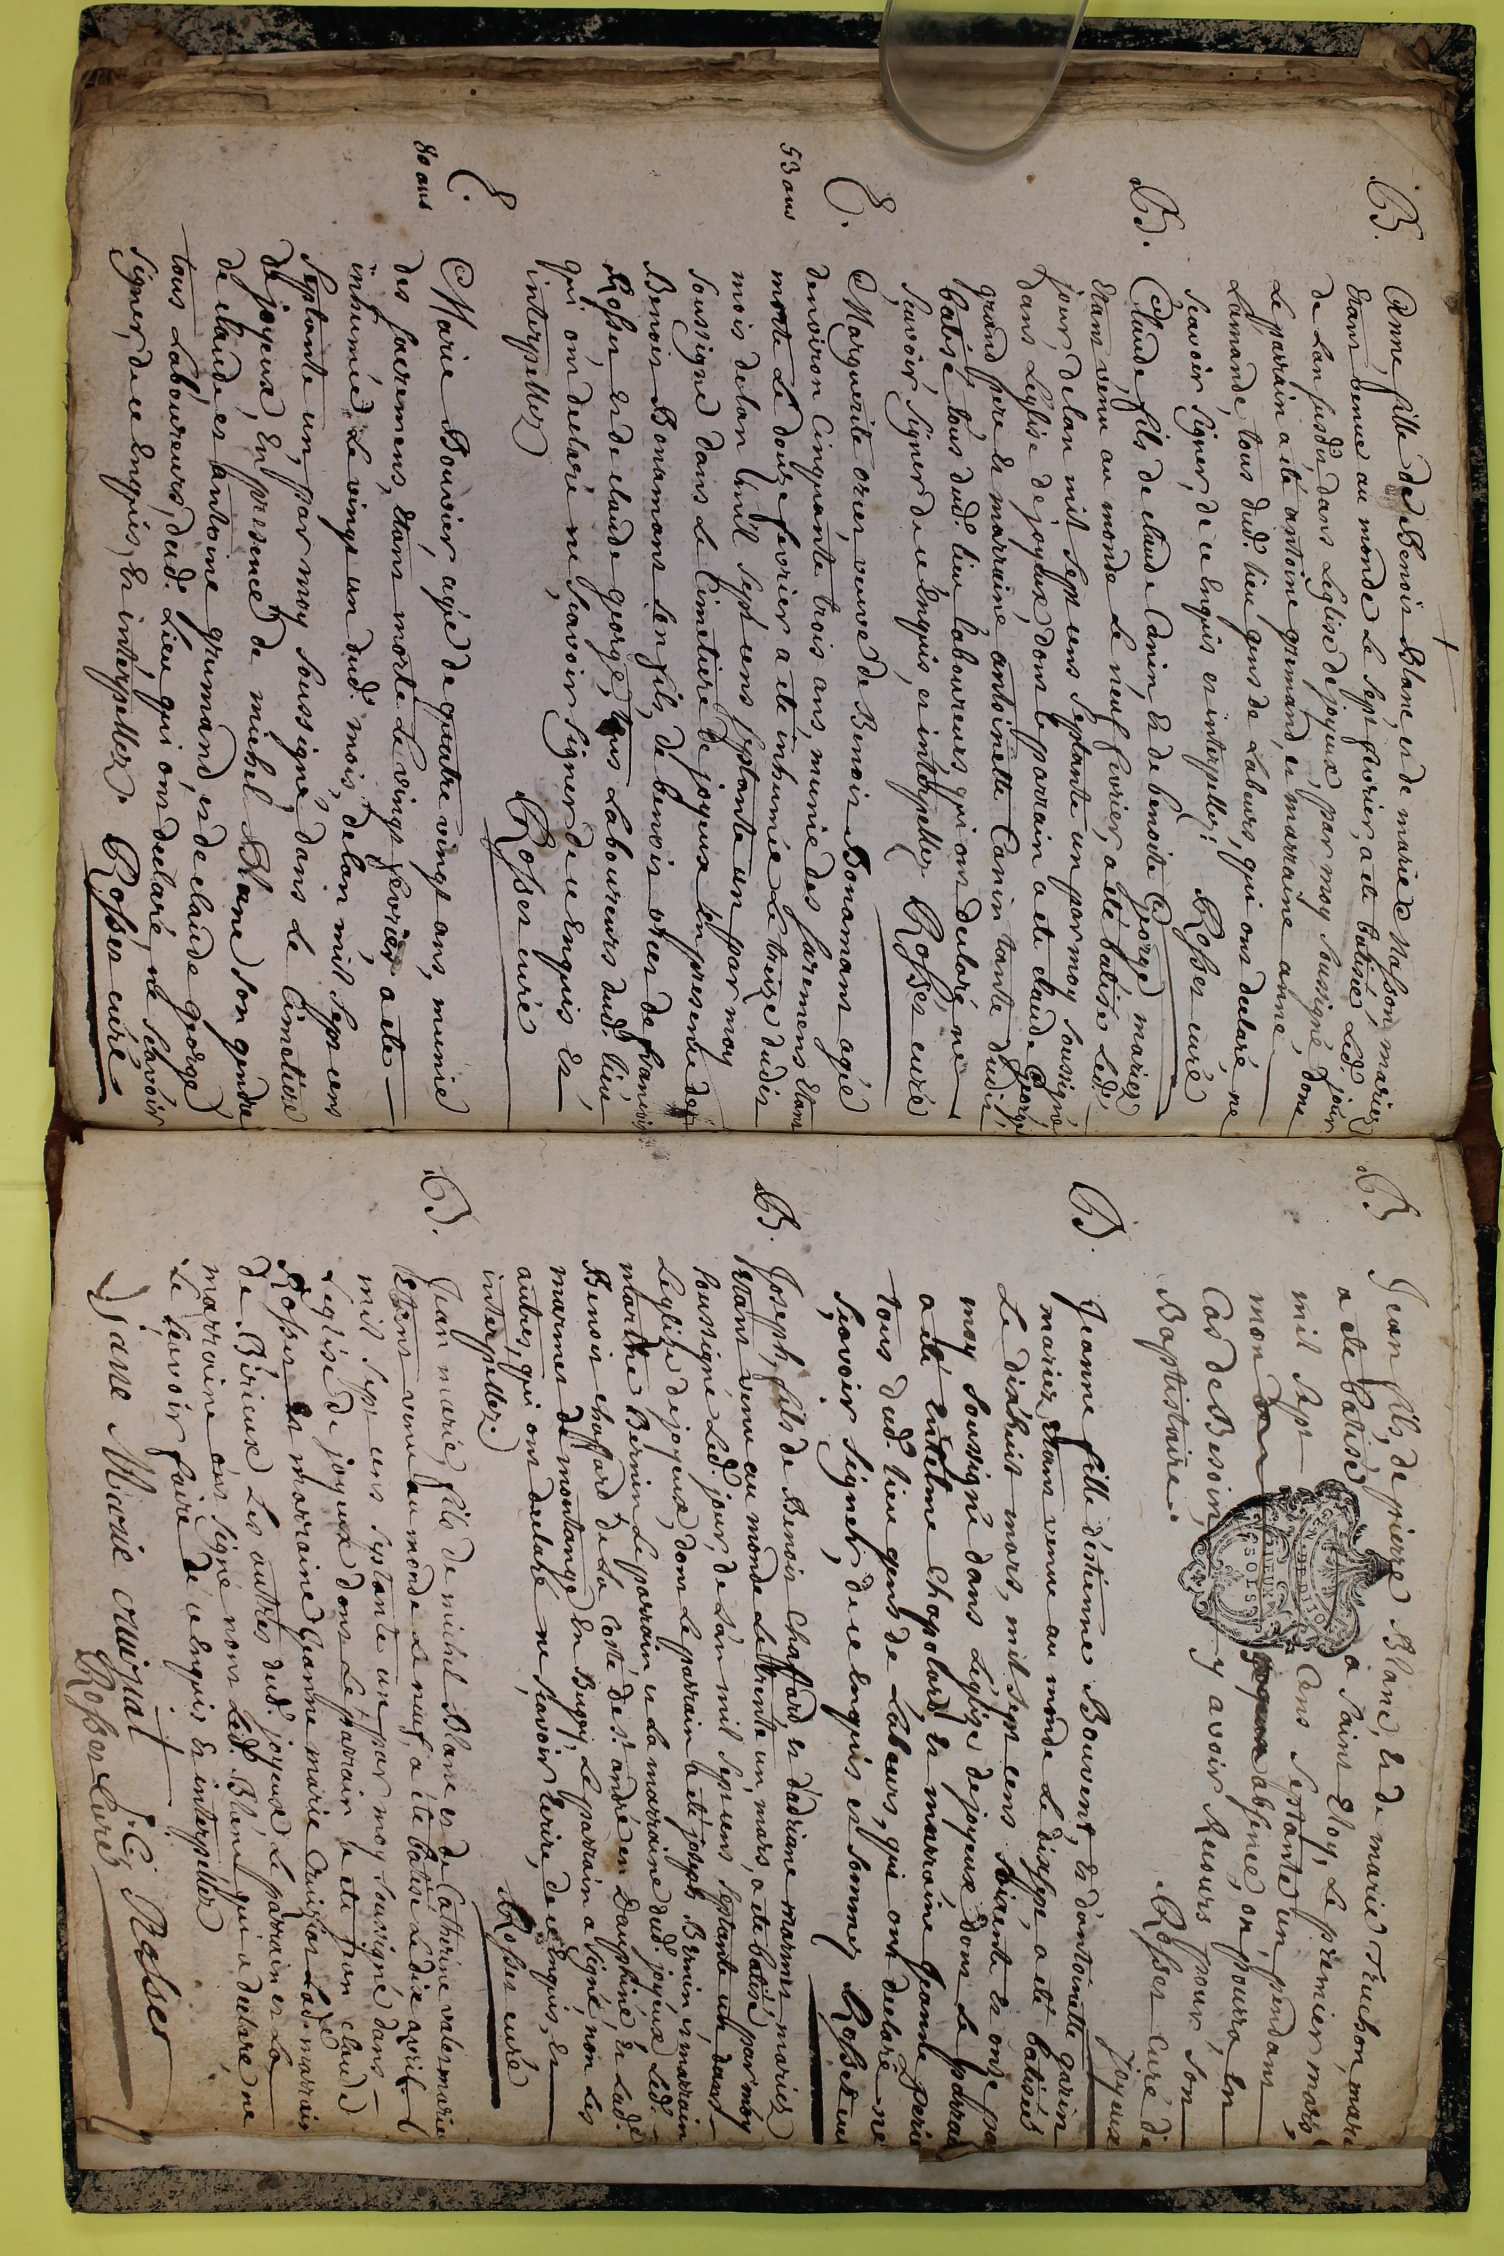 B. Anne, fille de Benoit Blanc, et de marie Masson mariez
étant venue au monde le sept fevrier, a eté batisée led. jour
de Lan susdit dans Leglise de joyeux, par moy soussigné, dont
Le parrain a eté antoine grumand, et marraine anne
Lamande, tous dud. lieu gens de Labeurs, qui ont declaré ne
scavoir signer, de ce enquis et interpellez. Rosser curé
B. Claude, fils de claude Canin, et de benoite George mariez
étant venu au monde le neuf fevrier, a eté batisé led.
jour, de lan mil sept cens septante un par moy soussigné
dans L'eglise de joyeux, dont le parrain a eté claude George
grand pere et marraine antoinette Canin tante dudit
batisé tous dud. lieu laboureurs qui ont declaré ne
scavoir signer de ce enquis, et interpellez Rosser curé
E. Marguerite orier, veuve de Benoit Bonamant agée
denviron Cinquante trois ans, munie des sacremens étant
53 ans
morte Le douze fevrier a eté inhumée Le treize dudit
mois de lan mil sept cens septante un par moy
soussigné dans Le Cimetiere de joyeux en presence de
Benoit Bonamant son fils, de benoit orier de francois
Rosser et de claude george, tous Laboureurs dud. lieu
qui ont declaré ne scavoir signer de ce enquis et
interpellez Rosser curé
E. Marie Bouvier, agée de quatre vingt ans, munie
80 ans
des sacremens, étant morte Le vingt fevrier a eté
inhumée Le vingt un dud. mois, de lan mil sept cens
septante un, par moy soussigné, dans Le Cimetiere
de joyeux, en presence de michel Blanc son gendre
de claude et antoine grumand, et de claude george
tous Laboureurs, dud. Lieu qui ont declaré ne scavoir
signer, de ce enquis, et interpellez. Rosser curé
B Jean fils, de pierre Blanc, et de marie Truchon, mari
a eté batisé a saint Eloy, Le premier mars
mil sept cens septante un, pendant
mon absence, on pourra en
Cas de Besoin, y avoir Recours pour son
Baptistaire. Rosser Curé de
joyeux
B. Jeanne fille d'estienne Bouvent, et d'antoinette garin
mariez, étant venue au monde Le dixsept, a eté batisée
Le dixhuit mars, mil sept cens soixante et onze pa
moy soussigné dans L'eglise de joyeux dont Le parrai
a eté Entelme Chapolard et marraine Jeanne Perri
tous dud. lieu gens de Labeurs, qui ont declaré ne
scavoir signer, de ce enquis, et sommez Rosser cu
B. Joseph, fils de Benoit Chaffard, et d'adriane marmet mariez
étant venu au monde Le trente un mars, a eté batisé par moy
soussigné Led. jour, de Lan mil sept cens septante un, dans
L'eglise de joyeux, dont Le parrain a eté joseph Bernin et marrain
marthe Bernin Le parrain et La marraine dud. joyeux Led.
Benoit chaffard de La Coste de st. andré en Dauphiné et Lad.
marmet de montange en Bugey. Le parrain a signé, non Les
autres, qui ont declaré ne scavoir Ecrire, de ce enquis, et
interpellez. Rosser curé
B. Jean marie, fils de michel Blanc et de Catherine valer mariez
étant venu au monde Le neuf, a eté batisé Le dix avril
mil sept cens septante un par moy soussigné dans
L'eglise de joyeux dont Le parrain a eté jean claude
Rosser et marraine Jeanne marie Lad. marrai
de Birieux Les autres dud. joyeux Le parrain et La
marraine ont signé non Led. Blanc, qui a declaré ne
Le scavoir faire de ce enquis et interpellez
Jane Marie J: C: Rosser
Rosser Curé
SOLS